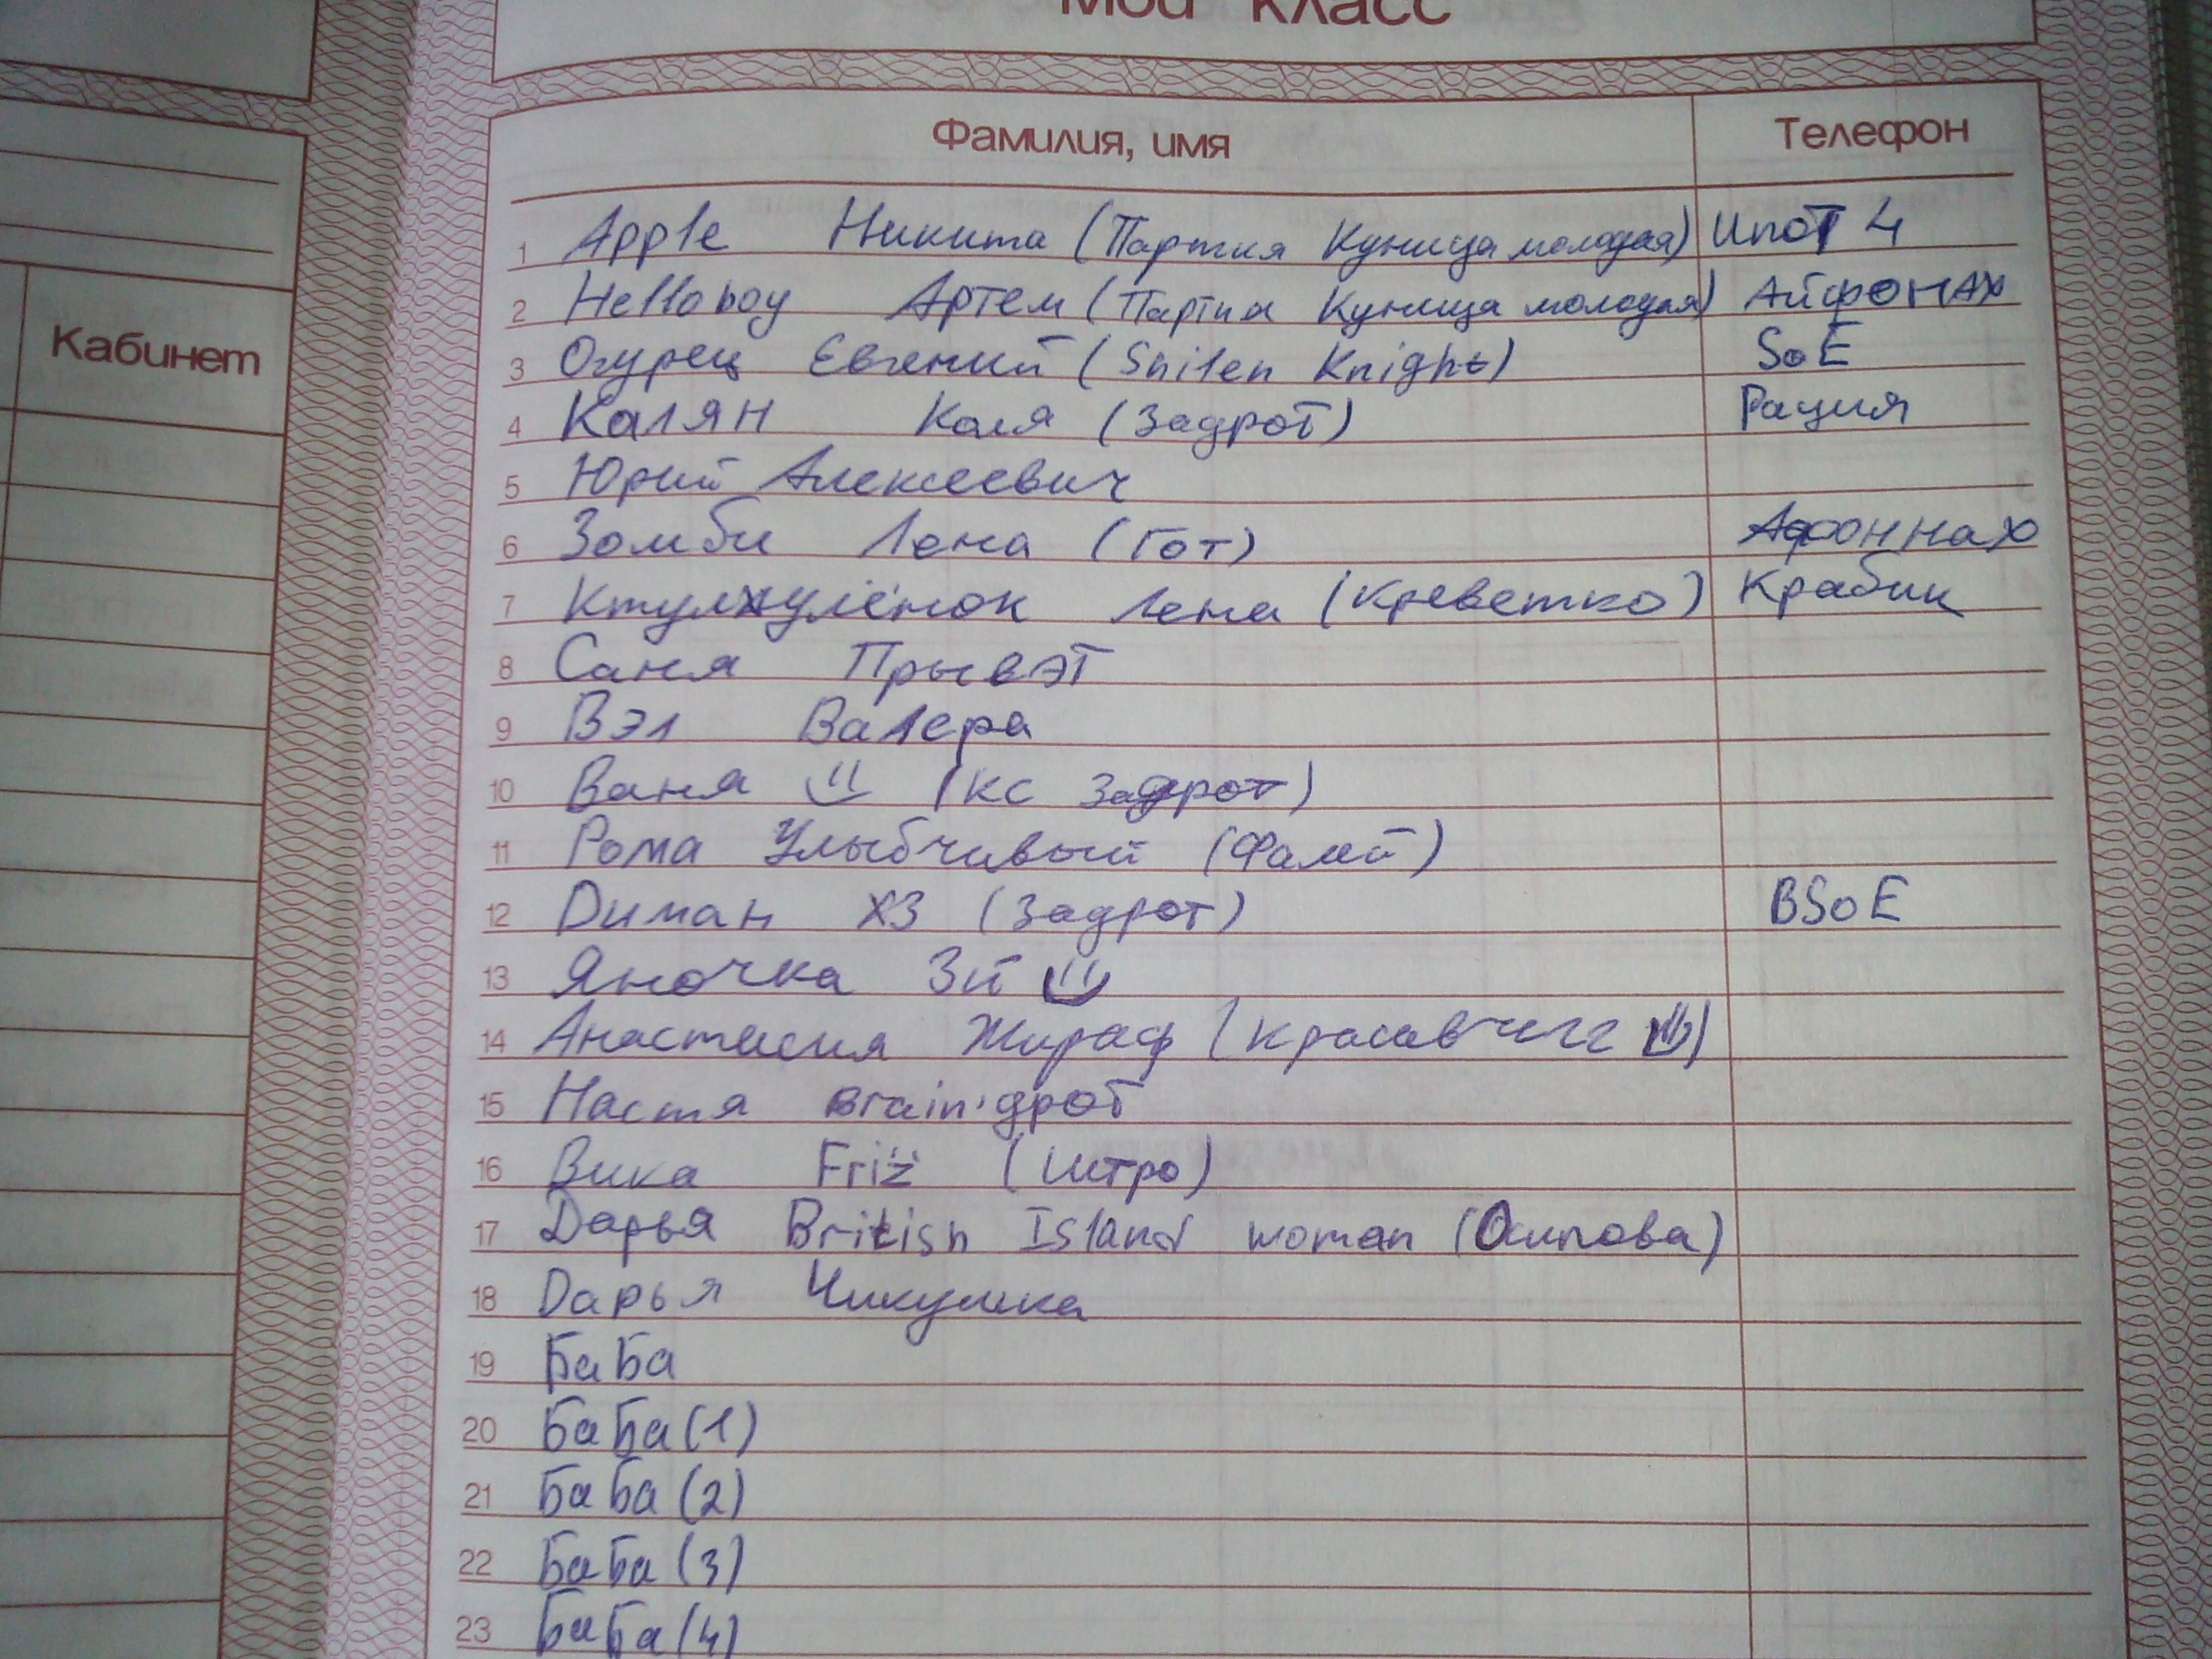 Мой класс
Фамилия, имя Телефон
Кабинет
1 Apple Никита (Партия Куница молодая) Ипот 4
2 Helloboy Артем (Партия Куница молодая) Айфонах
3 Огурец Евгений (Shilen Knight) SoE
4 Калян Коля (Задрот) Рация
5 Юрий Алексеевич
6 Зомби Лена (Гот) Афоннах
7 Ктулхулёнок Лена (креветко) Крабик
8 Саня Прывэт
9 Вэл Валера
10 Ваня (КС задрот)
11 Рома Улыбчивый (Фалей)
12 Диман ХЗ (Задрот) BSoE
13 Яночка Зй
14 Анастасия Жираф (красавчегг)
15 Настя Brain·дрот
16 Вика Friz (Истро)
17 Дарья British Island woman (Осипова)
18 Дарья Чикушка
19 БаБа
20 БаБа (1)
21 БаБа (2)
22 БаБа (3)
23 БаБа (4)